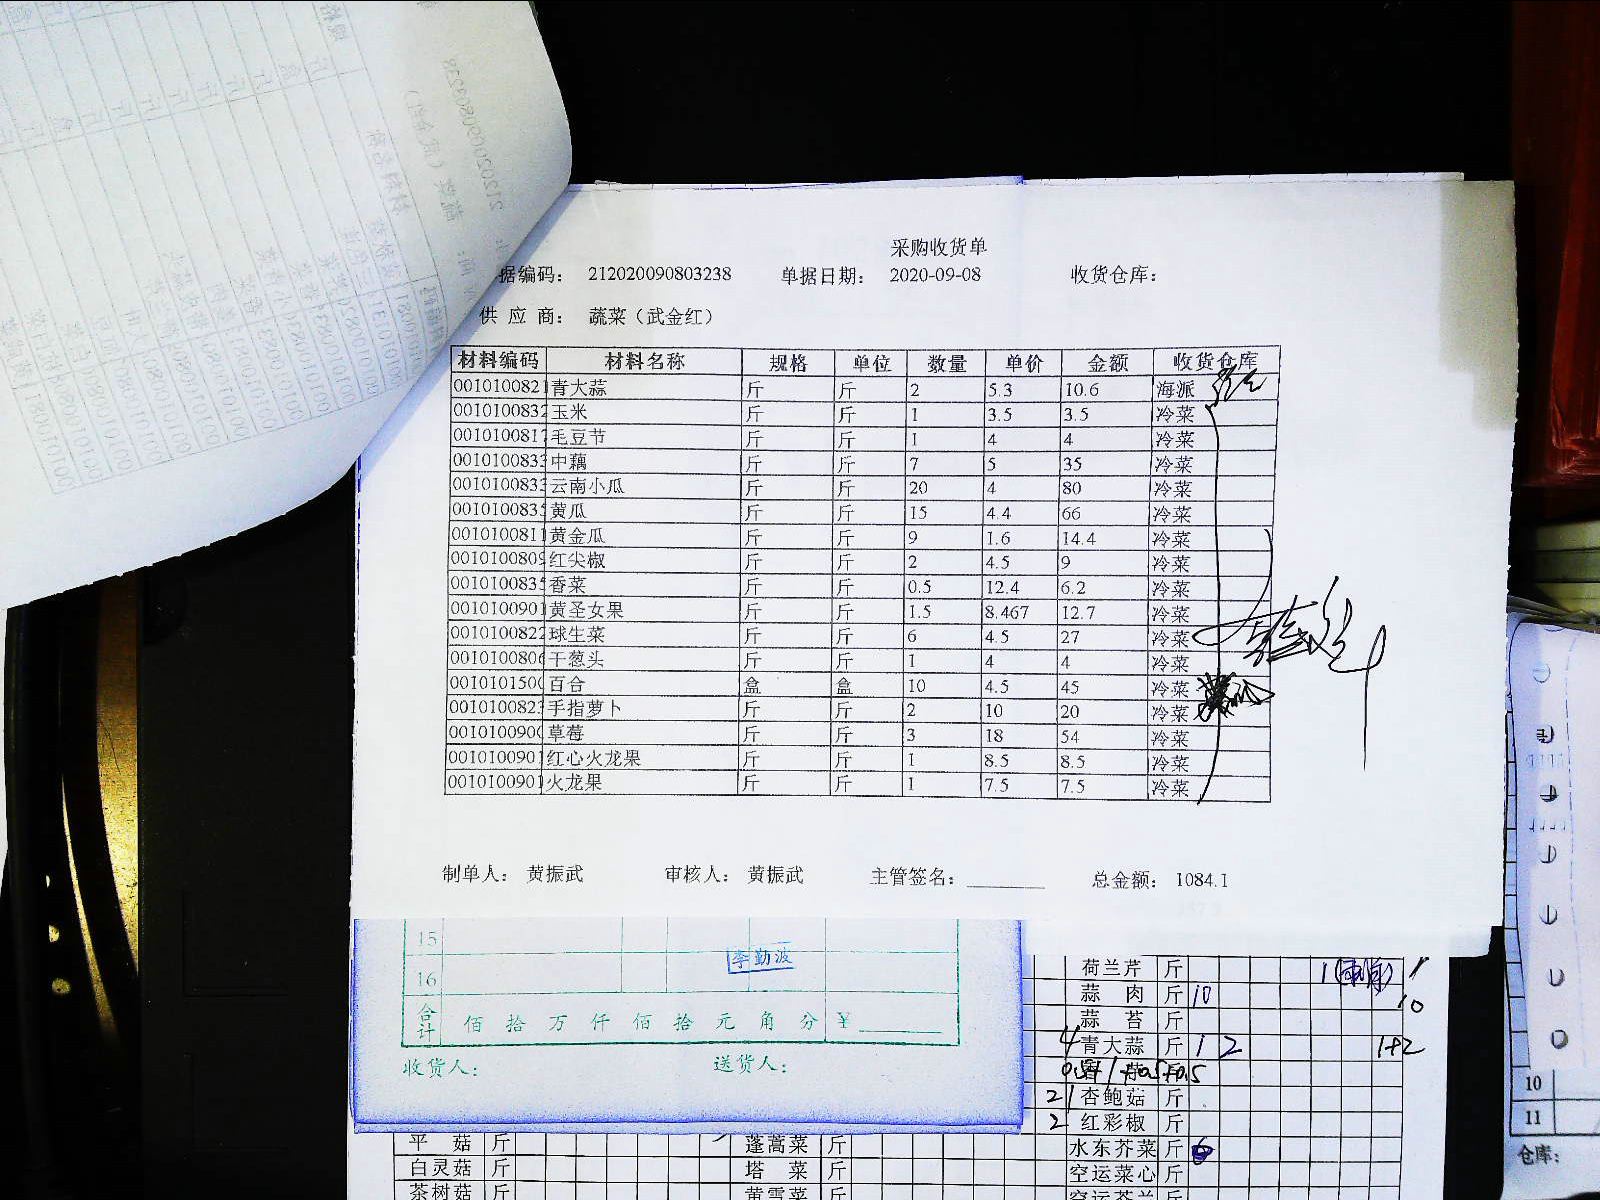 采购收货单
据编码： 212020090803238 单据日期： 2020-09-08 收货仓库：
供 应 商： 蔬菜（武金红）
材料编码 材料名称 规格 单位 数量 单价 金额 收货仓库
0010100821 青大蒜 斤 斤 2 5.3 10.6 海派
001010083 玉米 斤 斤 1 3.5 3.5 冷菜
001010081 毛豆节 斤 斤 1 4 4 冷菜
001010083 中藕 斤 斤 7 5 35 冷菜
001010083 云南小瓜 斤 斤 20 4 80 冷菜
001010083 黄瓜 斤 斤 15 4.4 66 冷菜
001010081 黄金瓜 斤 斤 9 1.6 14.4 冷菜
001010080 红尖椒 斤 斤 2 4.5 9 冷菜
001010083 香菜 斤 斤 0.5 12.4 6.2 冷菜
001010090 黄圣女果 斤 斤 1.5 8.467 12.7 冷菜
001010082 球生菜 斤 斤 6 4.5 27 冷菜
001010080 干葱头 斤 斤 1 4 4 冷菜
001010150 百合 盒 盒 10 4.5 45 冷菜
001010082 手指萝卜 斤 斤 2 10 20 冷菜
001010090 草莓 斤 斤 3 18 54 冷菜
001010090 红心火龙果 斤 斤 1 8.5 8.5 冷菜
001010090 火龙果 斤 斤 1 7.5 7.5 冷菜
制单人： 黄振武 审核人： 黄振武 主管签名： 总金额： 1084.1
15
16 李勤波
合计 佰 拾 万 仟 佰 拾 元 角 分 ¥
收货人： 送货人：
荷兰芹 斤
蒜 肉 斤 10 10
蒜 苔 斤
4 青大蒜 斤 1 2 1+2
2 杏鲍菇 斤
2 红彩椒 斤
水东芥菜 斤
空运菜心 斤
空运芥兰 斤
平 菇 斤 蓬蒿菜 斤
白灵菇 斤 塔 菜 斤
茶树菇 斤 黄雪菜 斤
10
11
仓库：